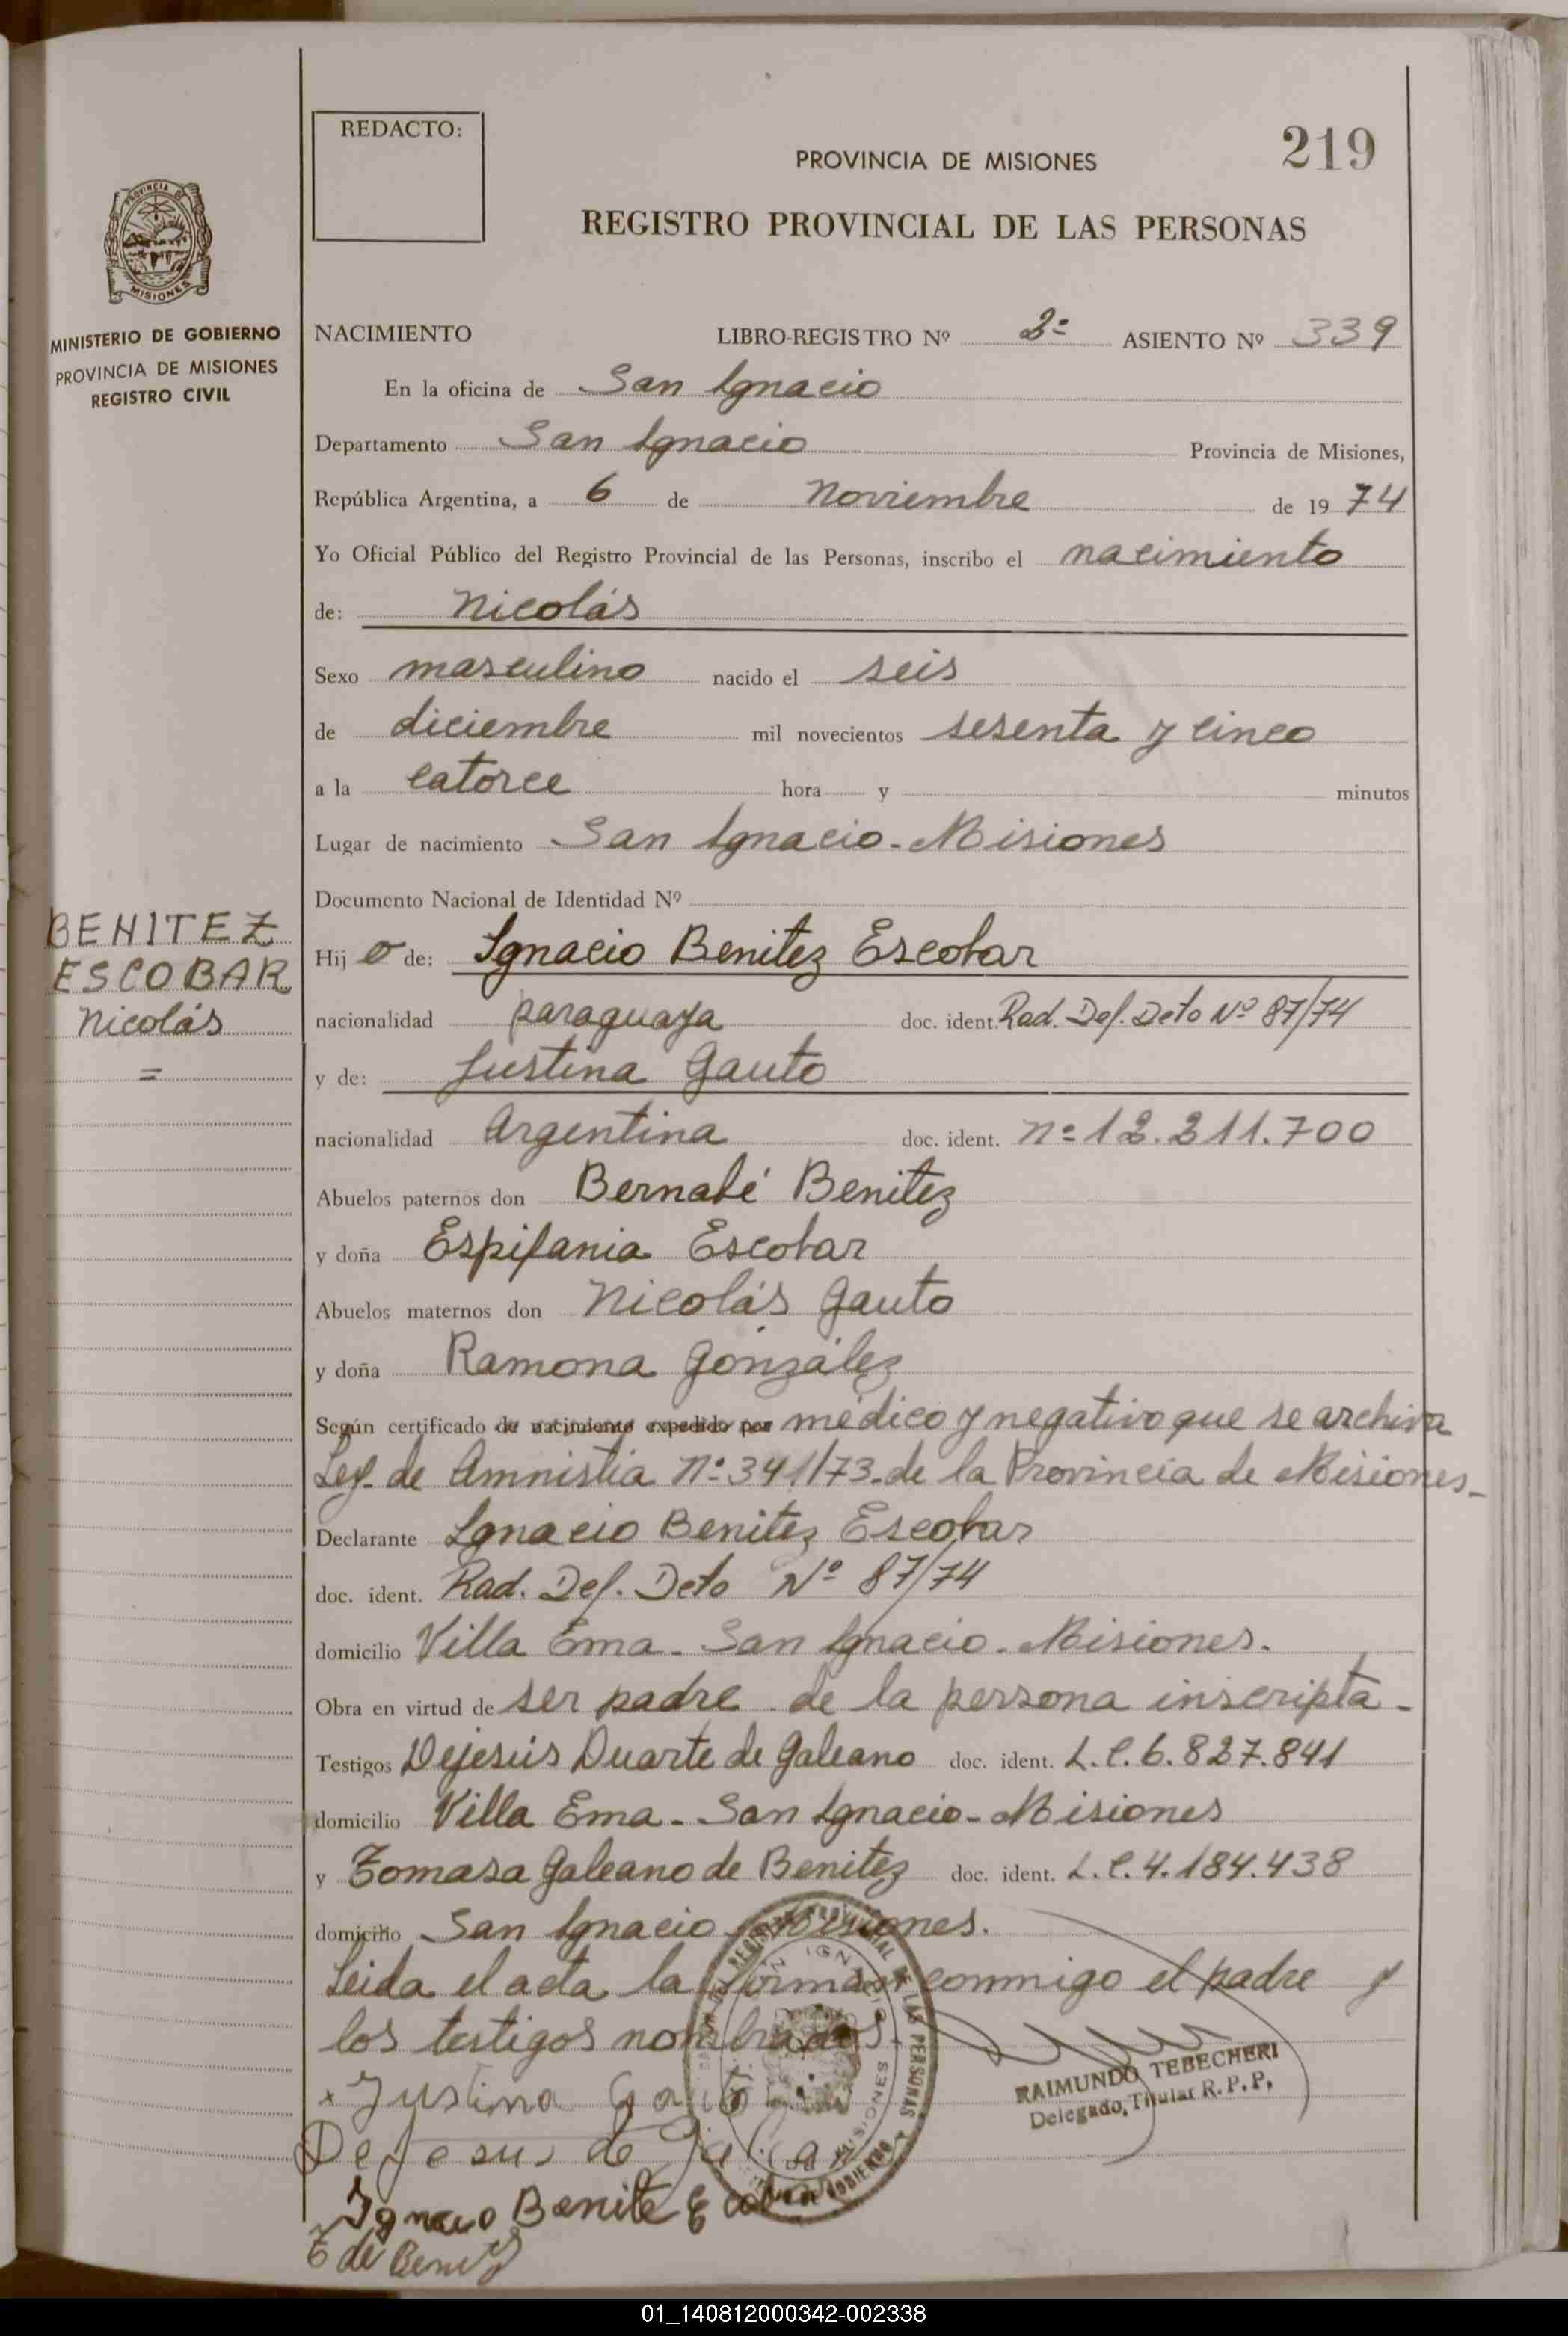 REDACTO:
219
PROVINCIA DE MISIONES
REGISTRO PROVINCIAL DE LAS PERSONAS
PROVINCIA DE
MISIONES
MINISTERIO DE GOBIERNO
PROVINCIA DE MISIONES
REGISTRO CIVIL
NACIMIENTO LIBRO-REGISTRO Nº 2º ASIENTO Nº 339
En la oficina de San Ignacio
Departamento San Ignacio Provincia de Misiones,
República Argentina, a 6 de Noviembre de 1974
Yo Oficial Público del Registro Provincial de las Personas, inscribo el nacimiento
de: Nicolás
Sexo masculino nacido el seis
de diciembre mil novecientos sesenta y cinco
a la catorce hora y minutos
Lugar de nacimiento San Ignacio - Misiones
Documento Nacional de Identidad Nº
BENITEZ
ESCOBAR
Nicolás
=
Hijo de: Ignacio Benitez Escobar
nacionalidad paraguaya doc. ident. Rad. Def. Deto Nº 87/74
y de: Justina Gauto
nacionalidad Argentina doc. ident. nº 12.211.700
Abuelos paternos don Bernabé Benitez
y doña Espifania Escobar
Abuelos maternos don Nicolás Gauto
y doña Ramona González
Según certificado de nacimiento expedido por médico y negativo que se archiva
Ley de Amnistia Nº 341/73 de la Provincia de Misiones -
Declarante Ignacio Benitez Escobar
doc. ident. Rad. Def. Deto Nº 87/74
domicilio Villa Ema - San Ignacio - Misiones.
Obra en virtud de ser padre de la persona inscripta -
Testigos Dejesús Duarte de Galeano doc. ident. L.C. 6.827.841
domicilio Villa Ema - San Ignacio - Misiones
y Tomasa Galeano de Benitez doc. ident. L.C. 4.184.438
domicilio San Ignacio - Misiones.
Leida el acta la firman conmigo el padre y
los testigos nombrados.
RAIMUNDO TEBECHERI
Delegado Titular R. P. P.
x Justina Gauto
Dejesus de
Ignacio Benite
T de Benitez
01_140812000342-002338